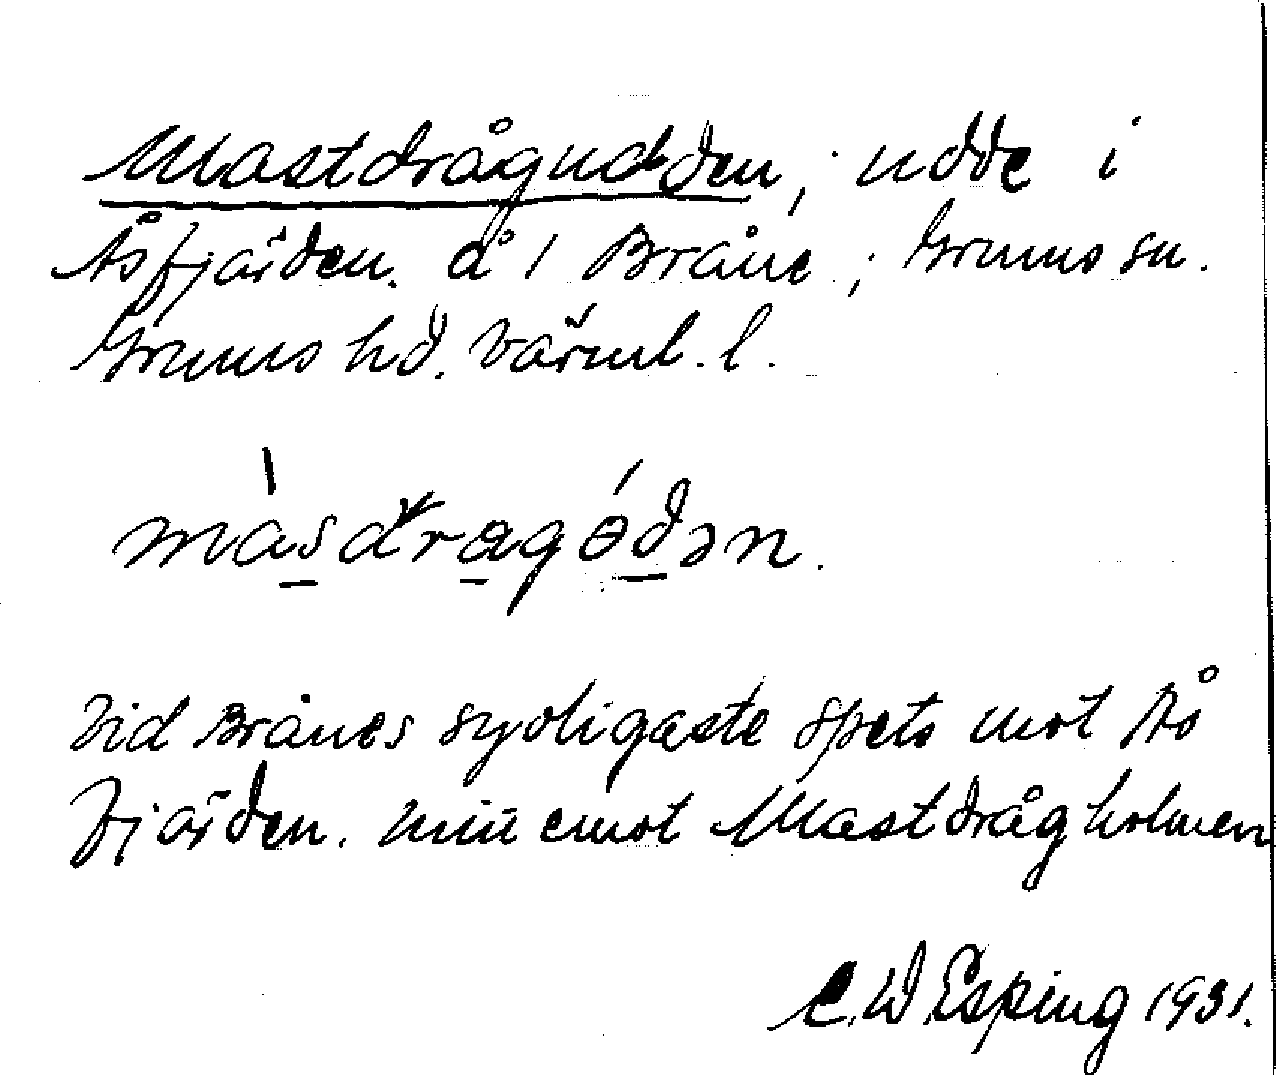 Mastdrågudden, udde i
Åsfjärden. å 1 Bråne; Grums sn.
Grums hd. Värml. l.
màsdragódən.
Vid Brånes sydligaste spets mot Ås
fjärden. mitt emot Mastdrågholmen
C. W Esping 1931.